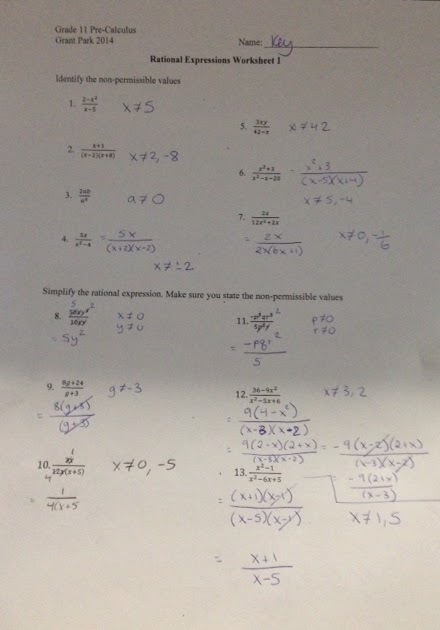 Grade 11 Pre-Calculus
Grant Park 2014
Name: Key
Rational Expressions Worksheet 1
Identify the non-permissible values
1. (2-x²)/(x-5) x≠5
2. (x+1)/((x-2)(x+8)) x≠2, -8
3. a≠0
4. 5x/(x²-4) = 5x/((x+2)(x-2))
x≠±2
5. 3xy/(42-x) x≠42
6. (x²+3)/(x²-x-20) = (x²+3)/((x-5)(x+4))
x≠5, -4
7. 2x/(12x²+2x)
= 2x/(2x(6x+1)) x≠0, -1/6
Simplify the rational expression. Make sure you state the non-permissible values
8. x≠0
y≠0
= 5y²
9. (8g+24)/(g+3) g≠-3
= 8(g+3)/(g+3)
10. x≠0, -5
= 1/(4(x+5
11. p≠0
r≠0
12. (36-9x²)/(x²-5x+6) x≠3, 2
= 9(4-x²)/((x-3)(x-2))
= 9(2-x)(2+x)/((x-3)(x-2)) = -9(x-2)(2+x)/((x-3)(x-2))
-9(2+x)/(x-3)
13. (x²-1)/(x²-6x+5)
= (x+1)(x-1)/((x-5)(x-1)) x≠1, 5
= (x+1)/(x-5)